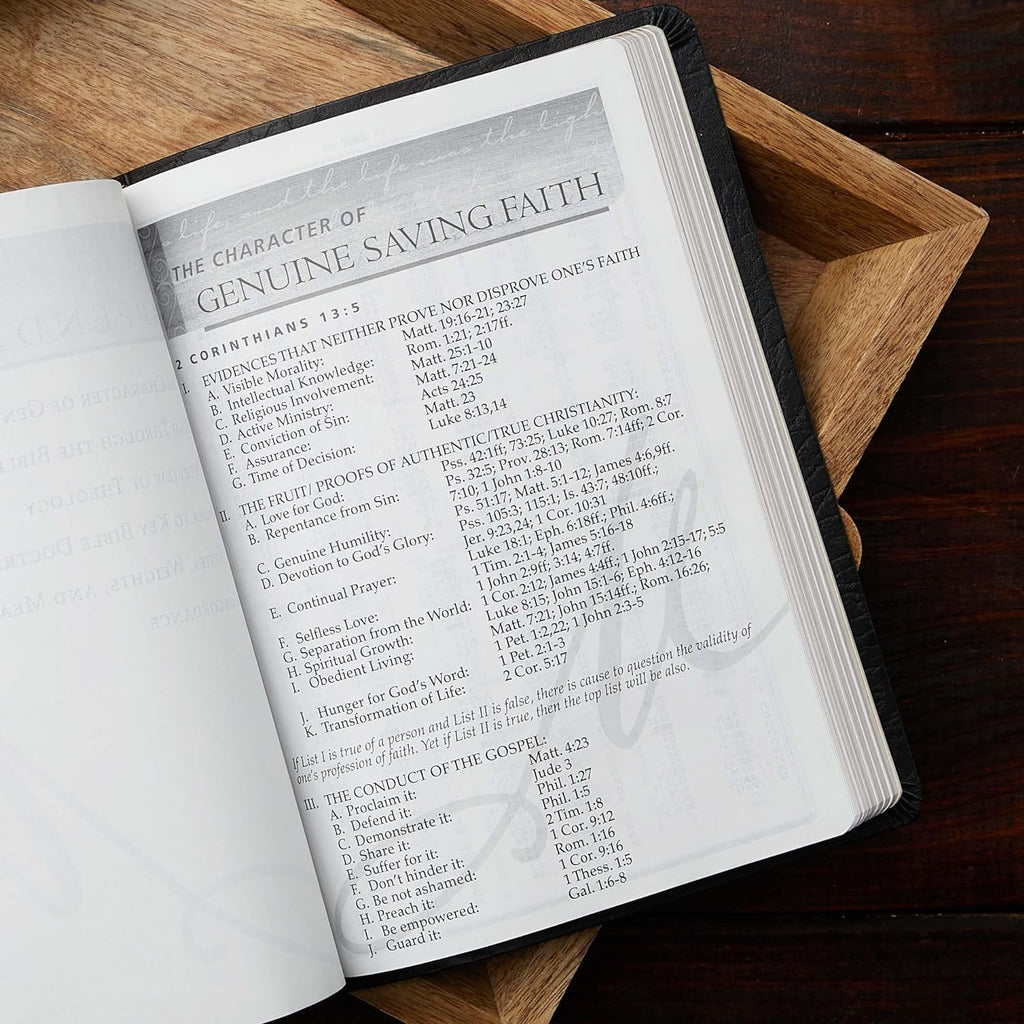 life and the life was the ligh
THE CHARACTER OF
GENUINE SAVING FAITH
2 CORINTHIANS 13:5
I. EVIDENCES THAT NEITHER PROVE NOR DISPROVE ONE'S FAITH
A. Visible Morality: Matt. 19:16-21; 23:27
B. Intellectual Knowledge: Rom. 1:21; 2:17ff.
C. Religious Involvement: Matt. 25:1-10
D. Active Ministry: Matt. 7:21-24
E. Conviction of Sin: Acts 24:25
F. Assurance: Matt. 23
G. Time of Decision: Luke 8:13,14
II. THE FRUIT/ PROOFS OF AUTHENTIC/TRUE CHRISTIANITY:
A. Love for God: Pss. 42:1ff; 73:25; Luke 10:27; Rom. 8:7
B. Repentance from Sin: Ps. 32:5; Prov. 28:13; Rom. 7:14ff; 2 Cor.
7:10; 1 John 1:8-10
C. Genuine Humility: Ps. 51:17; Matt. 5:1-12; James 4:6,9ff.
D. Devotion to God's Glory: Pss. 105:3; 115:1; Is. 43:7; 48:10ff.;
Jer. 9:23,24; 1 Cor. 10:31
E. Continual Prayer: Luke 18:1; Eph. 6:18ff.; Phil. 4:6ff.;
1 Tim. 2:1-4; James 5:16-18
F. Selfless Love: 1 John 2:9ff; 3:14; 4:7ff.
G. Separation from the World: 1 Cor. 2:12; James 4:4ff.; 1 John 2:15-17; 5:5
H. Spiritual Growth: Luke 8:15; John 15:1-6; Eph. 4:12-16
I. Obedient Living: Matt. 7:21; John 15:14ff.; Rom. 16:26;
1 Pet. 1:2,22; 1 John 2:3-5
J. Hunger for God's Word: 1 Pet. 2:1-3
K. Transformation of Life: 2 Cor. 5:17
If List I is true of a person and List II is false, there is cause to question the validity of
one's profession of faith. Yet if List II is true, then the top list will be also.
III. THE CONDUCT OF THE GOSPEL:
A. Proclaim it: Matt. 4:23
B. Defend it: Jude 3
C. Demonstrate it: Phil. 1:27
D. Share it: Phil. 1:5
E. Suffer for it: 2 Tim. 1:8
F. Don't hinder it: 1 Cor. 9:12
G. Be not ashamed: Rom. 1:16
H. Preach it: 1 Cor. 9:16
I. Be empowered: 1 Thess. 1:5
J. Guard it: Gal. 1:6-8